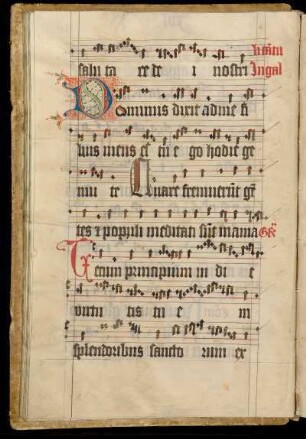 salu ta re de i nostri
In gal
Dominus dixit ad me fi
lius meus es tu e go hodie ge
nui te Quare fremuerūt gē
tes ⁊ populi meditati sūt inania
Tecum principium in di e
uirtu tis tu e in
splendoribus sancto rum ex